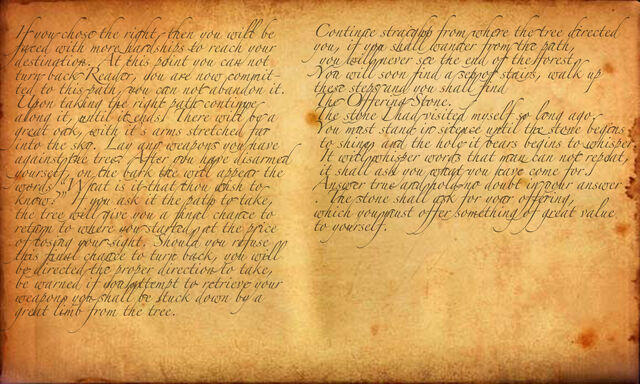 If you chose the right, then you will be
faced with more hardships to reach your
destination. At this point you can not
turn back Reader, you are now commit-
ted to this path, you can not abandon it.
Upon taking the right path continue
along it, until it ends. There will be a
great oak, with it's arms stretched far
into the sky. Lay any weapons you have
against the tree. After you have disarmed
yourself, on the bark the will appear the
words "What is it that thou wish to
know?" If you ask it the path to take,
the tree will give you a final chance to
return to where you started, at the price
of losing your sight. Should you refuse
this final chance to turn back, you will
be directed the proper direction to take,
be warned if you attempt to retrieve your
weapons you shall be stuck down by a
great limb from the tree.
Continue straight from where the tree directed
you, if you shall wander from the path,
you will never see the end of the forest.
You will soon find a set of stairs, walk up
these steps and you shall find
The Offering Stone.
The stone I had visited myself so long ago.
You must stand in silence until the stone begins
to shine, and the holy it bears begins to whisper.
It will whisper words that man can not repeat,
it shall ask you what you have come for.
Answer true and hold no doubt in your answer
. The stone shall ask for your offering,
which you must offer something of great value
to yourself.